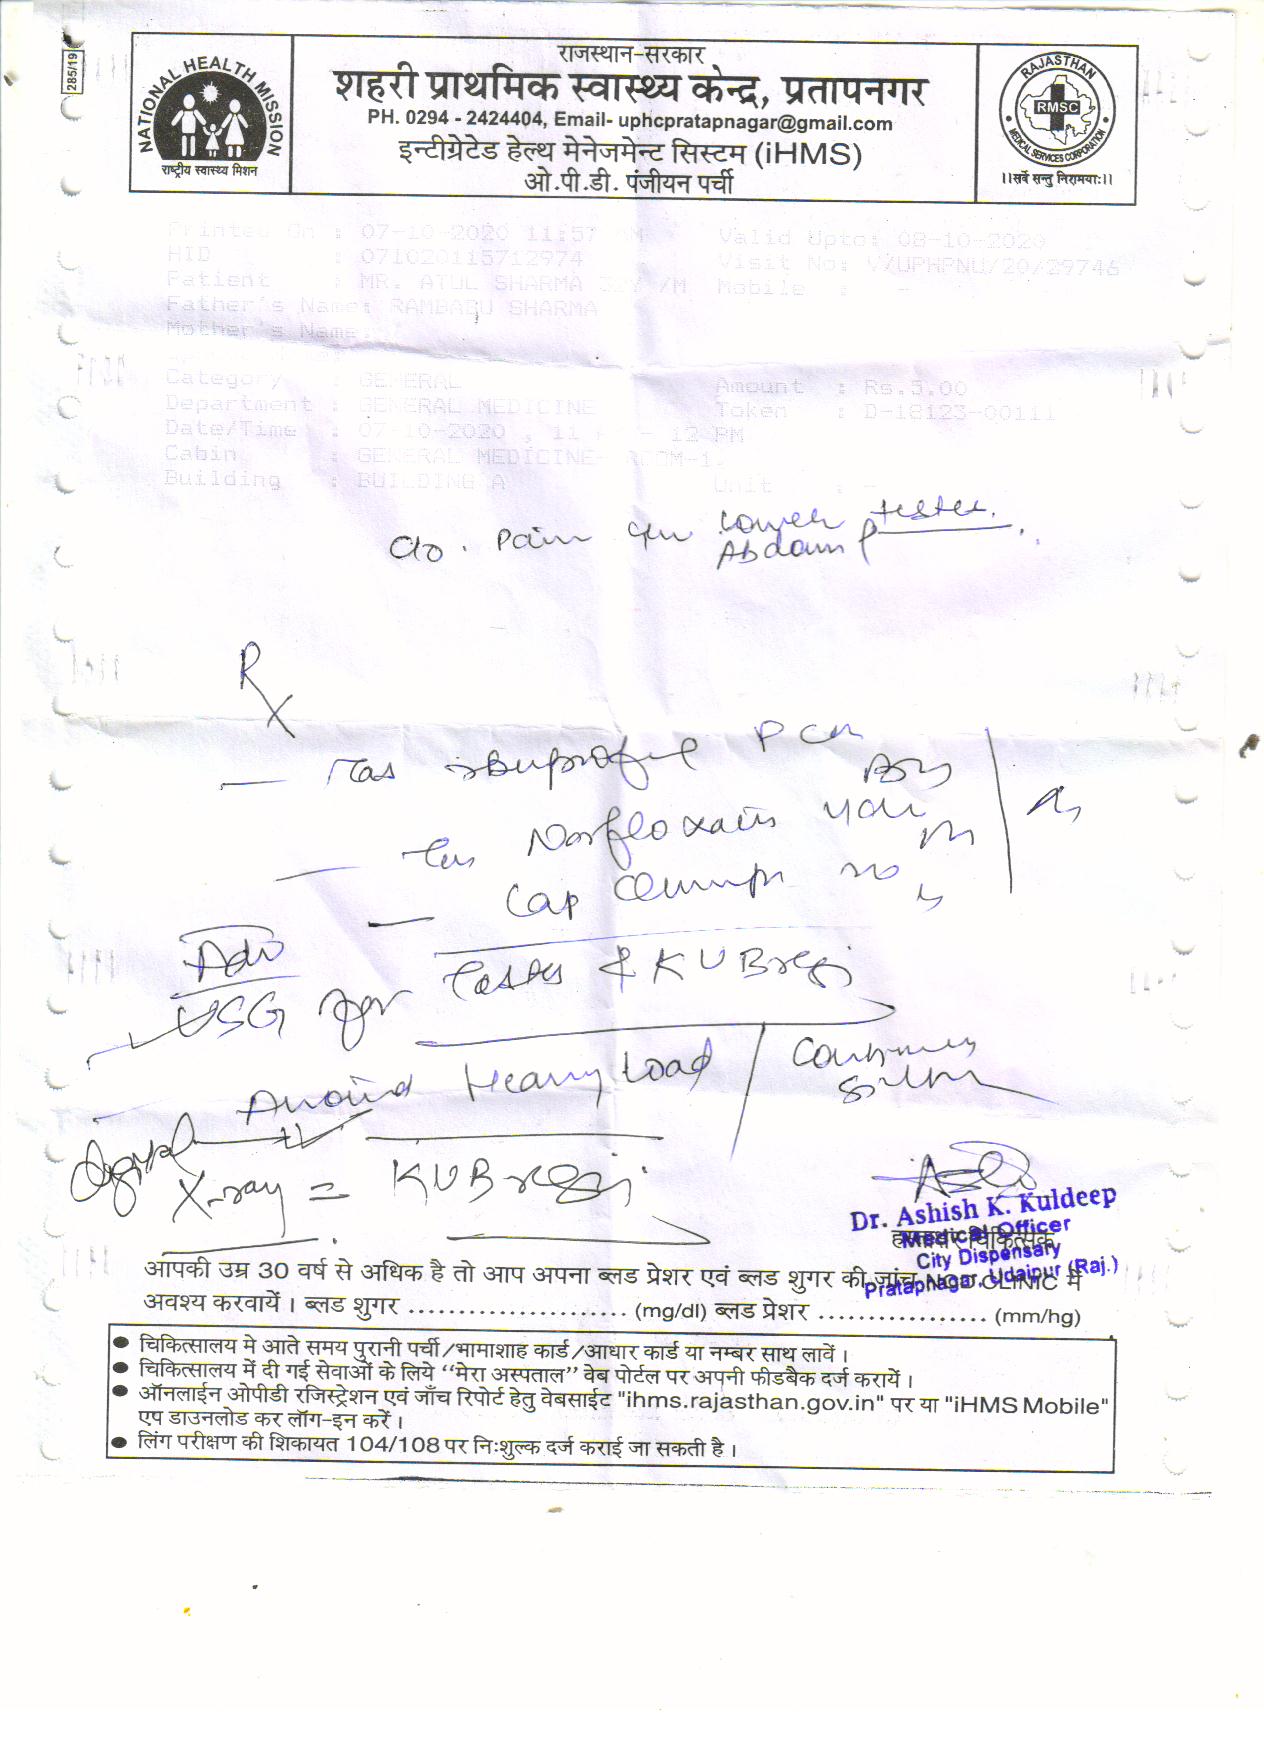 285/19
NATIONAL HEALTH MISSION
राष्ट्रीय स्वास्थ्य मिशन
राजस्थान-सरकार
शहरी प्राथमिक स्वास्थ्य केन्द्र, प्रतापनगर
PH. 0294 - 2424404, Email- uphcpratapnagar@gmail.com
इन्टीग्रेटेड हेल्थ मेनेजमेन्ट सिस्टम (iHMS)
ओ.पी.डी. पंजीयन पर्ची
RAJASTHAN
RMSC
MEDICAL SERVICES CORPORATION
।।सर्वे सन्तु निरामयाः।।
Printed On : 07-10-2020 11:57 Valid Upto: 08-10-2020
HID : 071020115712974 Visit No: V/UPHPNU/20/29746
Patient : MR. ATUL SHARMA /M Mobile : -
Father's Name: RAMBABU SHARMA
Mother's Name:
Category : GENERAL Amount : Rs.5.00
Department : GENERAL MEDICINE Token : D-18123-00111
Date/Time : 07-10-2020 , 11 - 12 PM
Cabin : GENERAL MEDICINE-
Building : BUILDING A Unit : -
c/o . Pain Lower
Rx
Ibuprofen PCM
Norfloxacin
Cap
Adv
USG for & KUB
Avoid Heavy Load
X-ray = KUB
Dr. Ashish K. Kuldeep
Medical Officer
City Dispensary
Pratapnagar, Udaipur (Raj.)
आपकी उम्र 30 वर्ष से अधिक है तो आप अपना ब्लड प्रेशर एवं ब्लड शुगर की जांच NCD CLINIC में
अवश्य करवायें । ब्लड शुगर ........................ (mg/dl) ब्लड प्रेशर ................. (mm/hg)
● चिकित्सालय मे आते समय पुरानी पर्ची/भामाशाह कार्ड/आधार कार्ड या नम्बर साथ लावें ।
● चिकित्सालय में दी गई सेवाओं के लिये "मेरा अस्पताल" वेब पोर्टल पर अपनी फीडबैक दर्ज करायें ।
● ऑनलाईन ओपीडी रजिस्ट्रेशन एवं जाँच रिपोर्ट हेतु वेबसाईट "ihms.rajasthan.gov.in" पर या "iHMS Mobile"
एप डाउनलोड कर लॉग-इन करें ।
● लिंग परीक्षण की शिकायत 104/108 पर निःशुल्क दर्ज कराई जा सकती है ।